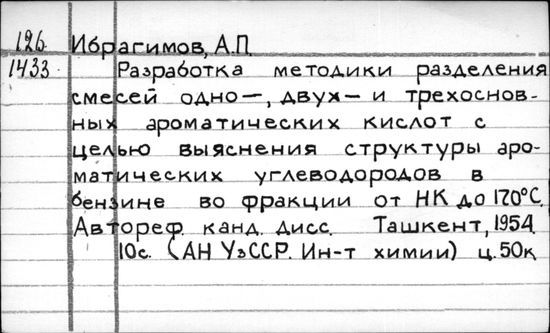 126 Ибрагимов, А.П.
1433 Разработка методики разделения
смесей одно-, двух- и трехоснов-
ных ароматических кислот с
целью выяснения структуры аро-
матических углеводородов в
бензине во фракции от НК до 170°С.
Автореф. канд. дисс. Ташкент, 1954.
10с. (АН УзССР. Ин-т химии) ц. 50к.